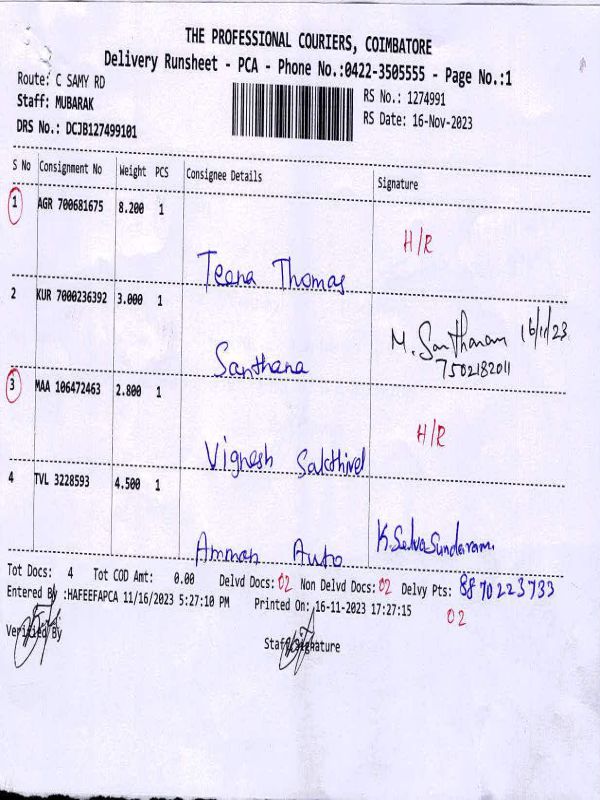 THE PROFESSIONAL COURIERS, COIMBATORE
Delivery Runsheet - PCA - Phone No.:0422-3505555 - Page No.:1
Route: C SAMY RD
Staff: MUBARAK
DRS No.: DCJB127499101
RS No.: 1274991
RS Date: 16-Nov-2023
S No Consignment No Weight PCS Consignee Details Signature
1 AGR 700681675 8.200 1
H/R
Teena Thomas
2 KUR 7000236392 3.000 1
M. Santhanam 16/11/23
7502182011
Santhana
3 MAA 106472463 2.800 1
H/R
Vignesh Sakthivel
4 TVL 3228593 4.500 1
K.SelvaSundaram
Amman Auto
Tot Docs: 4 Tot COD Amt: 0.00 Delvd Docs: 02 Non Delvd Docs: 02 Delvy Pts: 8870223733
Entered By :HAFEEFAPCA 11/16/2023 5:27:10 PM Printed On: 16-11-2023 17:27:15 02
Verified By Staff Signature